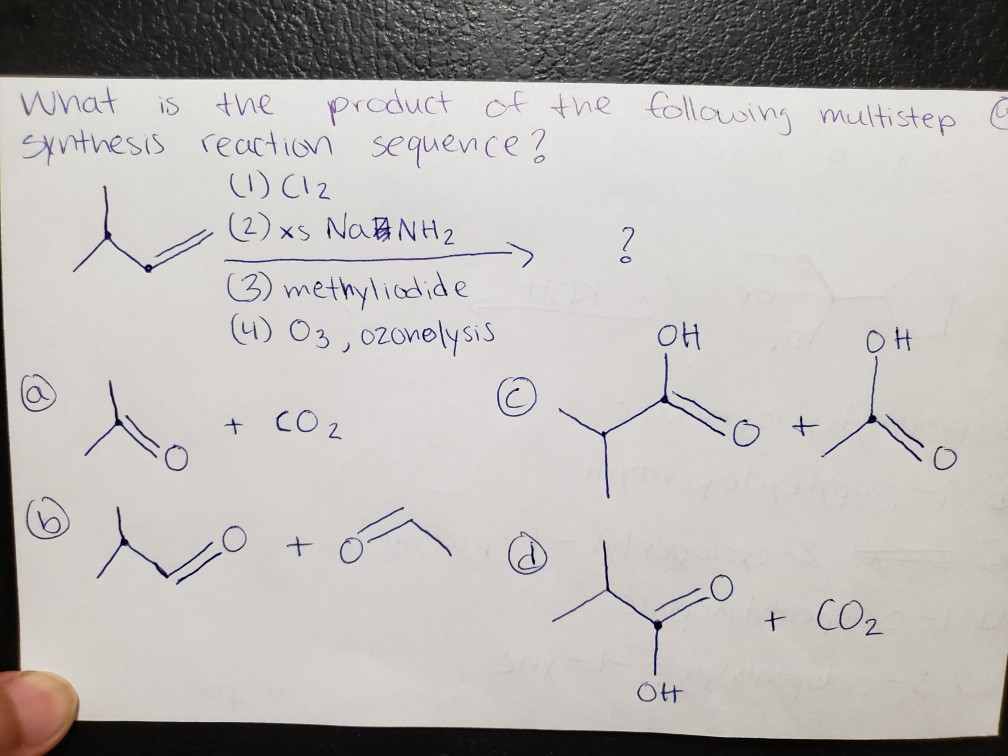 What is the product of the following multistep
synthesis reaction sequence?
(1) Cl2
(2) xs NaNH2
?
(3) methyliodide
(4) O3, ozonolysis
(a) O + CO2
(c) OH O + OH O
(b) O + O
(d) O OH + CO2